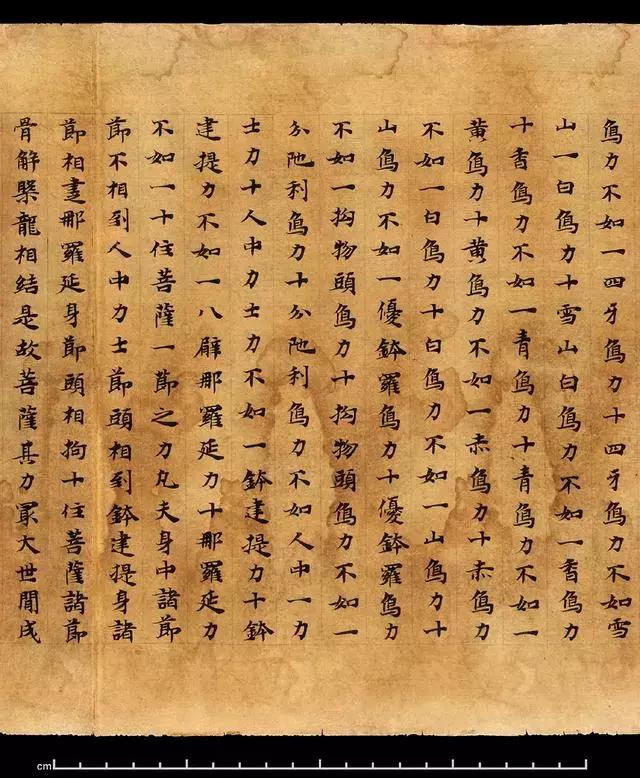 象力不如一四牙象力十四牙象力不如雪
山一白象力十雪山白象力不如一香象力
十香象力不如一青象力十青象力不如一
黄象力十黄象力不如一赤象力十赤象力
不如一白象力十白象力不如一山象力十
山象力不如一優鉢羅象力十優鉢羅象力
不如一拘物頭象力十拘物頭象力不如一
分陁利象力十分陁利象力不如人中一力
士力十人中力士力不如一鉢建提力十鉢
建提力不如一八臂那羅延力十那羅延力
不如一十住菩薩一節之力凡夫身中諸節
節不相到人中力士節頭相到鉢建提身諸
節相疌那羅延身節頭相拘十住菩薩諸節
骨解槃龍相結是故菩薩其力冣大世間成
cm